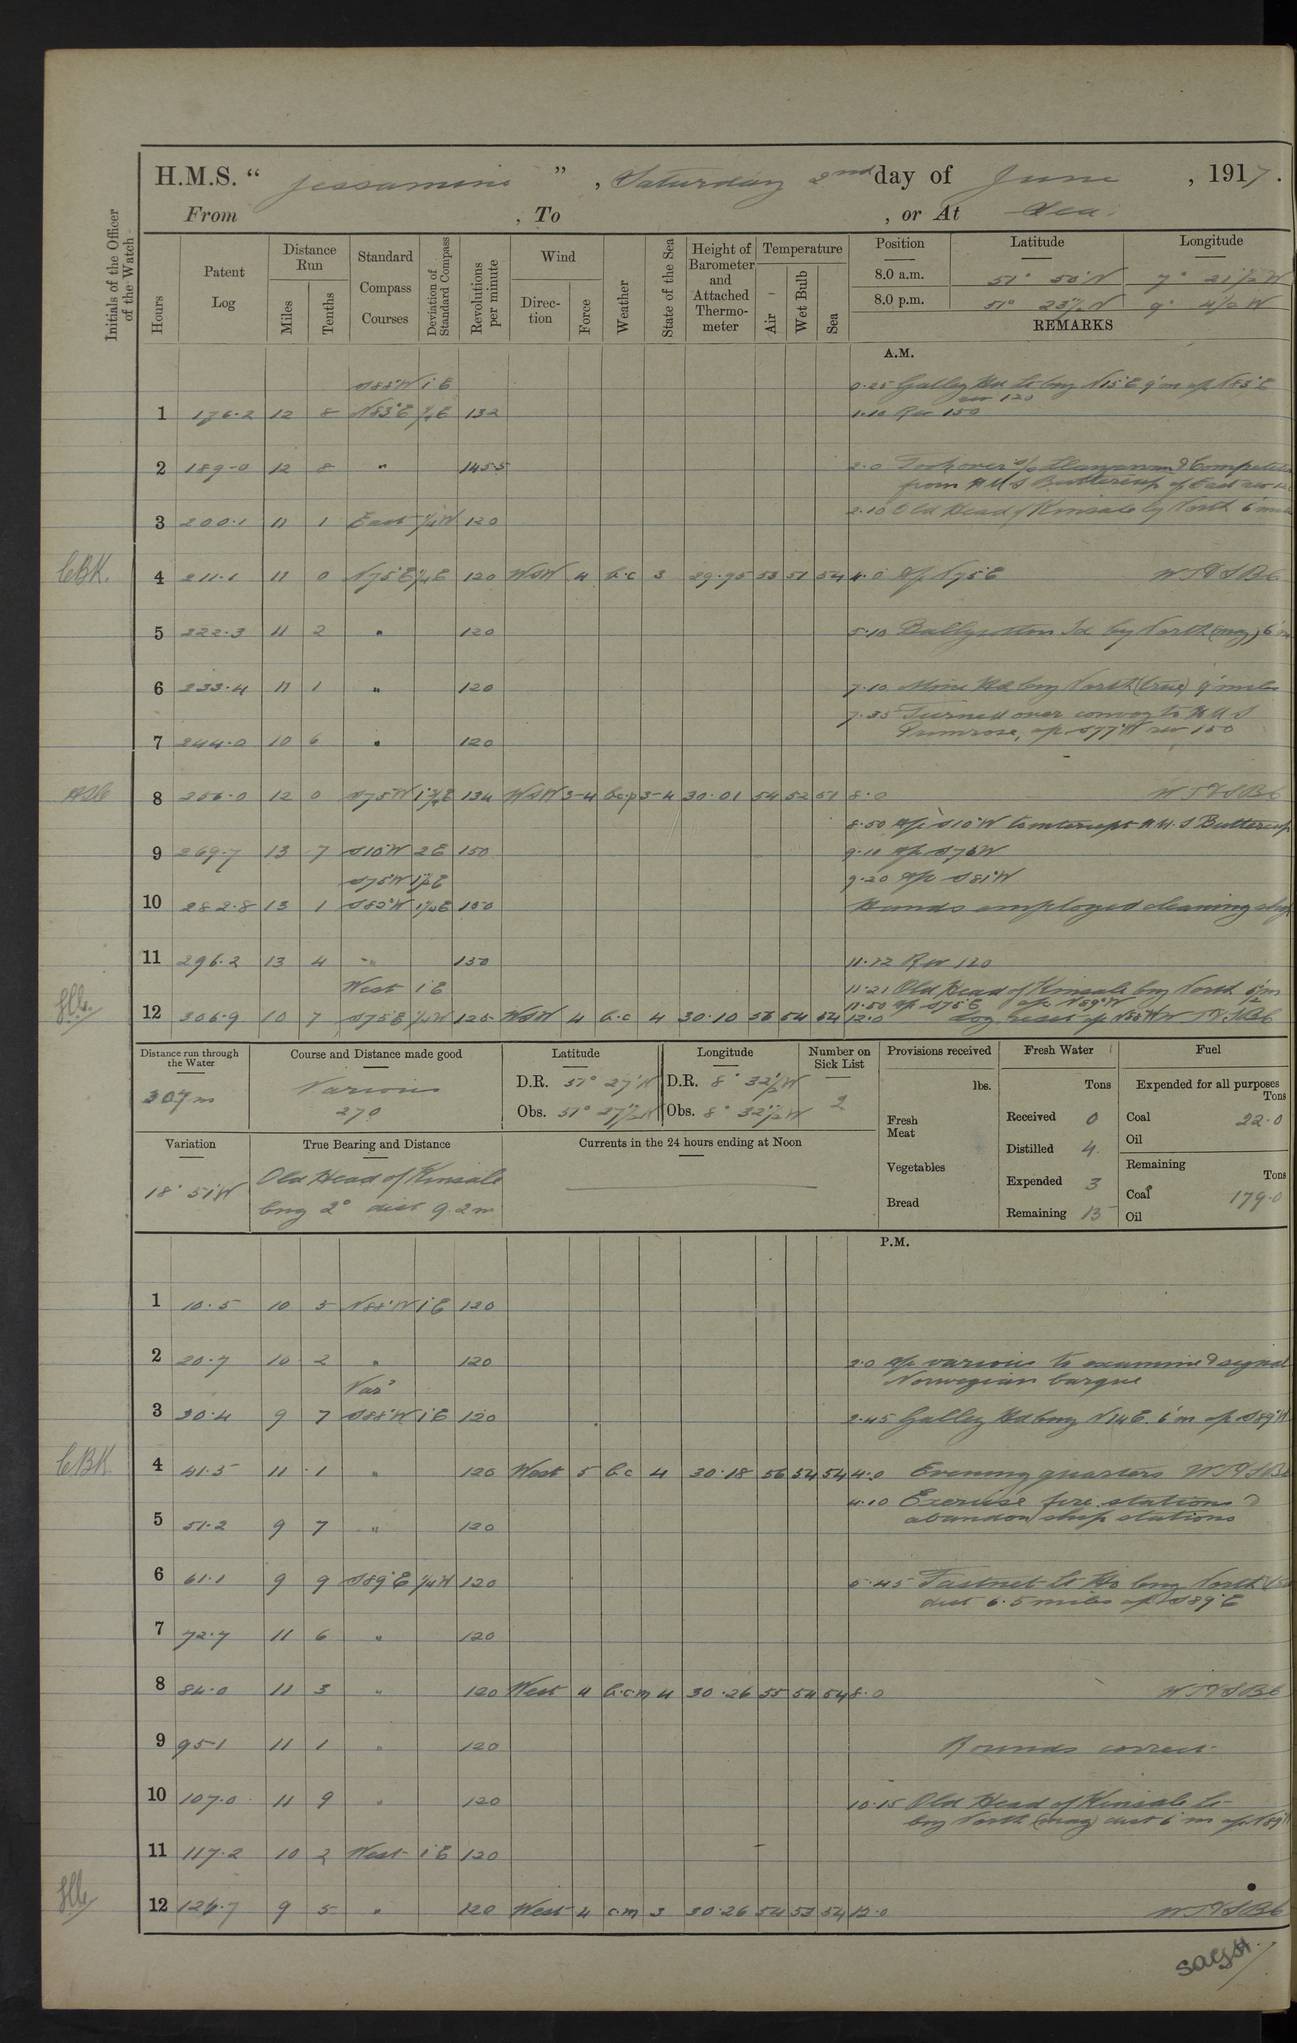 H.M.S. " Jessamine ", Saturday 2nd day of June, 1917.
From , To , or At Sea.
Initials of the Officer of the Watch
Hours
Patent Log
Distance Run
Miles
Tenths
Standard Compass Courses
Deviation of Standard Compass
Revolutions per minute
Wind
Direction
Force
Weather
State of the Sea
Height of Barometer and Attached Thermometer
Temperature
Air
Wet Bulb
Sea
Position Latitude Longitude
8.0 a.m. 51° 50' N 7° 21½ W
8.0 p.m. 51° 23½ N 9° 4½ W
REMARKS
A.M.
S88°W 1°E 0.25 Galley Hd Lt brg N15°E 9'm a/c N83°E
rev 120
1 176.2 12 8 N83°E ¼E 132 1.10 Rev 150
2 189.0 12 8 " 145.5 2.0 Took over s/s & Competitor
from H M S Buttercup a/c East rev 120
2.10 Old Head of Kinsale by North 6 miles
3 200.1 11 1 East ¼W 120
CBK. 4 211.1 11 0 N75°E ¼E 120 WSW 4 b.c 3 29.95 53 51 54 4.0 A/c N75°E
5 222.3 11 2 " 120 5.10 Ballycotton Id by North (mag) 6 m
6 233.4 11 1 " 120 7.10 Mine Hd brg North (true) 9 miles
7.35 Turned over convoy to H M S
Primrose, a/c S77°W rev 150
7 244.0 10 6 " 120
8 256.0 12 0 S75°W 1¾E 134 WSW 3-4 b.c.p 3-4 30.01 54 52 51 8.0
8.50 A/c S10°W to intercept H.M.S Buttercup
9 269.7 13 7 S10°W 2E 150 9.10 a/c S76W
S75°W 1½E 9.20 a/c S81°W
10 282.8 13 1 S82°W 1½E 150 Hands employed cleaning ship
11 296.2 13 4 " 150 11.12 Rev 120
West 1°E 11.21 Old Head of Kinsale brg North 6½m
11.50 a/c S75°E a/c N89°W
12 306.9 10 7 S75E ¼W 125 WSW 4 b.c 4 30.10 56 54 54 12.0 Log reset
Distance run through the Water
307 m
Course and Distance made good
Various
270
Latitude
D.R. 51° 27' N
Obs. 51° 27½ N
Longitude
D.R. 8° 32½ W
Obs. 8° 32½ W
Number on Sick List
2
Provisions received
lbs.
Fresh Meat
Vegetables
Bread
Fresh Water
Tons
Received 0
Distilled 4
Expended 3
Remaining 15
Fuel
Expended for all purposes
Tons
Coal 22.0
Oil
Remaining
Tons
Coal 179.0
Oil
Variation
18° 51'W
True Bearing and Distance
Old Head of Kinsale
brg 2° dist 9.2 m
Currents in the 24 hours ending at Noon
P.M.
1 10.5 10 5 N88°W 1°E 120
2 20.7 10 2 " 120 2.0 a/c various to examine & signal
Norwegian barque
Vars
3 30.4 9 7 S88°W 1°E 120 2.45 Galley Hd brg N14E. 6'm a/c S89°W
CBK 4 41.5 11 1 " 120 West 5 b.c 4 30.18 56 54 54 4.0 Evening quarters
4.10 Exercise fire stations &
abandon ship stations
5 51.2 9 7 " 120
6 61.1 9 9 S89°E ¼W 120 5.45 Fastnet Lt Ho brg North
dist 6.5 miles a/c S89°E
7 72.7 11 6 " 120
8 84.0 11 3 " 120 West 4 b.c.m 4 30.26 55 54 54 8.0
9 95.1 11 1 " 120 Rounds correct.
10 107.0 11 9 " 120 10.15 Old Head of Kinsale Lt
brg North (mag) dist 6'm a/c N89°W
11 117.2 10 2 West 1°E 120
12 126.7 9 5 " 120 West 4 c.m 3 30.26 54 53 54 12.0